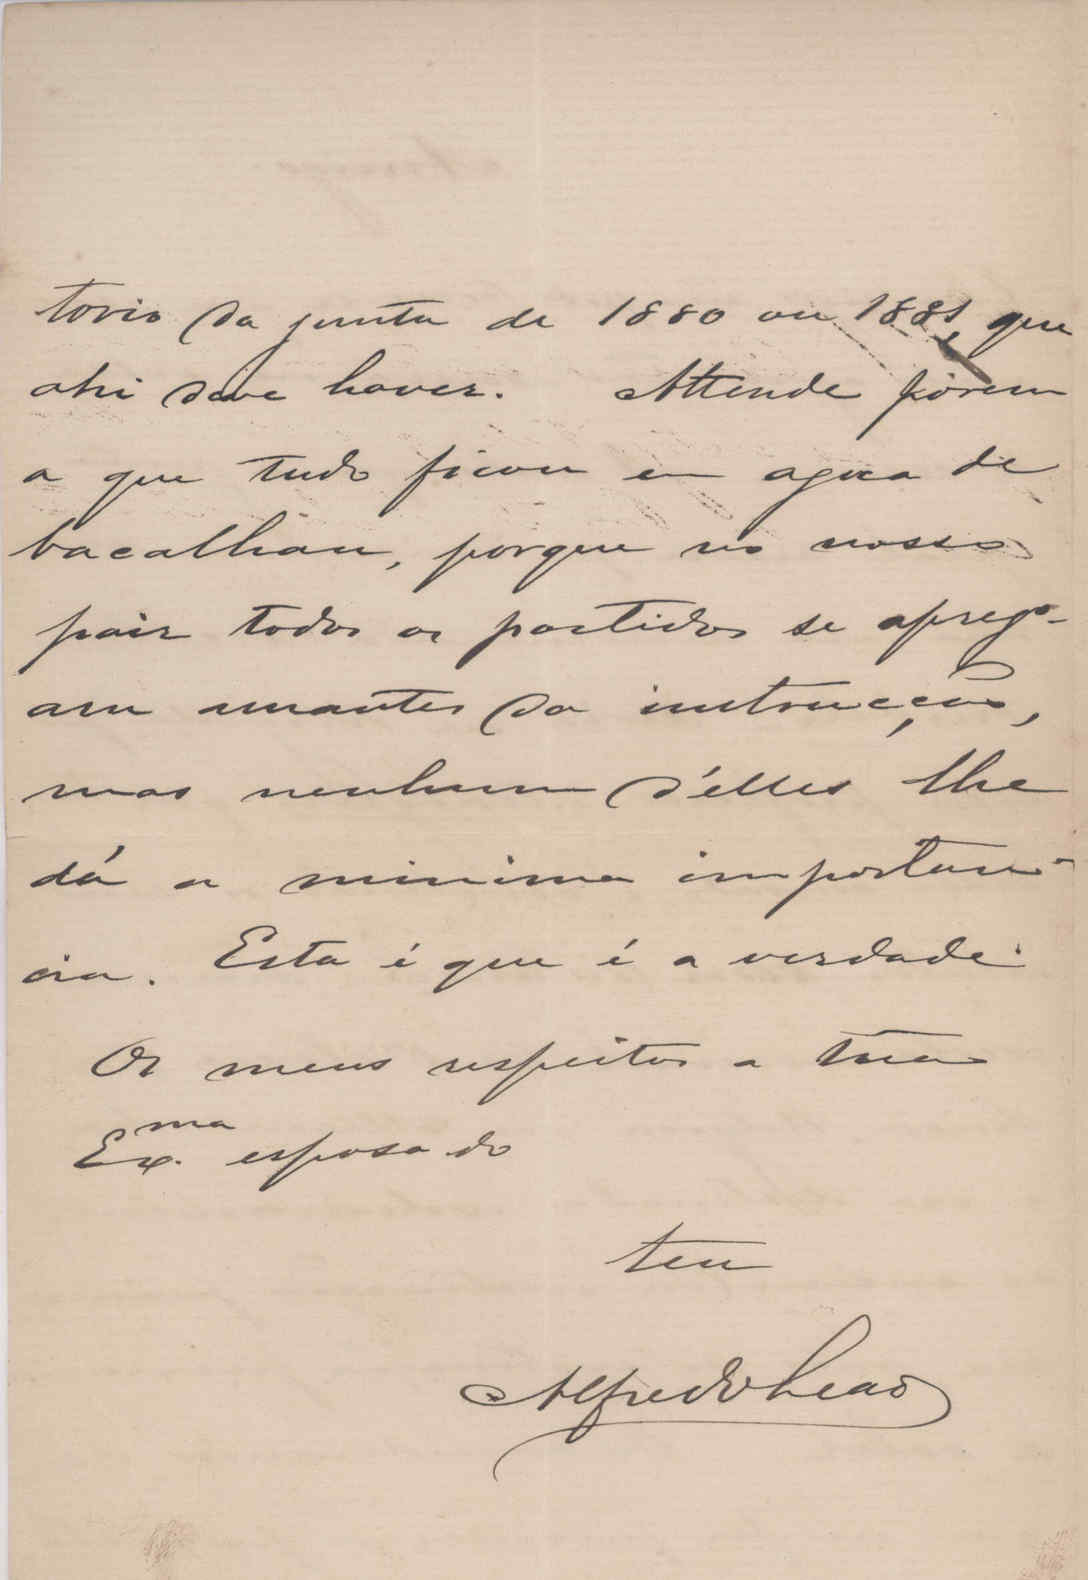 torio da junta de 1880 ou 1881, que
ahi deve haver. Attende porem
a que tudo ficou em agoa de
bacalhau, porque no nosso
paiz todos os partidos se aprego-
am amantes da instrucção,
mas nenhum d'elles lhe
dá a minima importan-
cia. Esta é que é a verdade.
Os meus respeitos a tua
Ex.ma esposa do
teu
Alfredo Leão